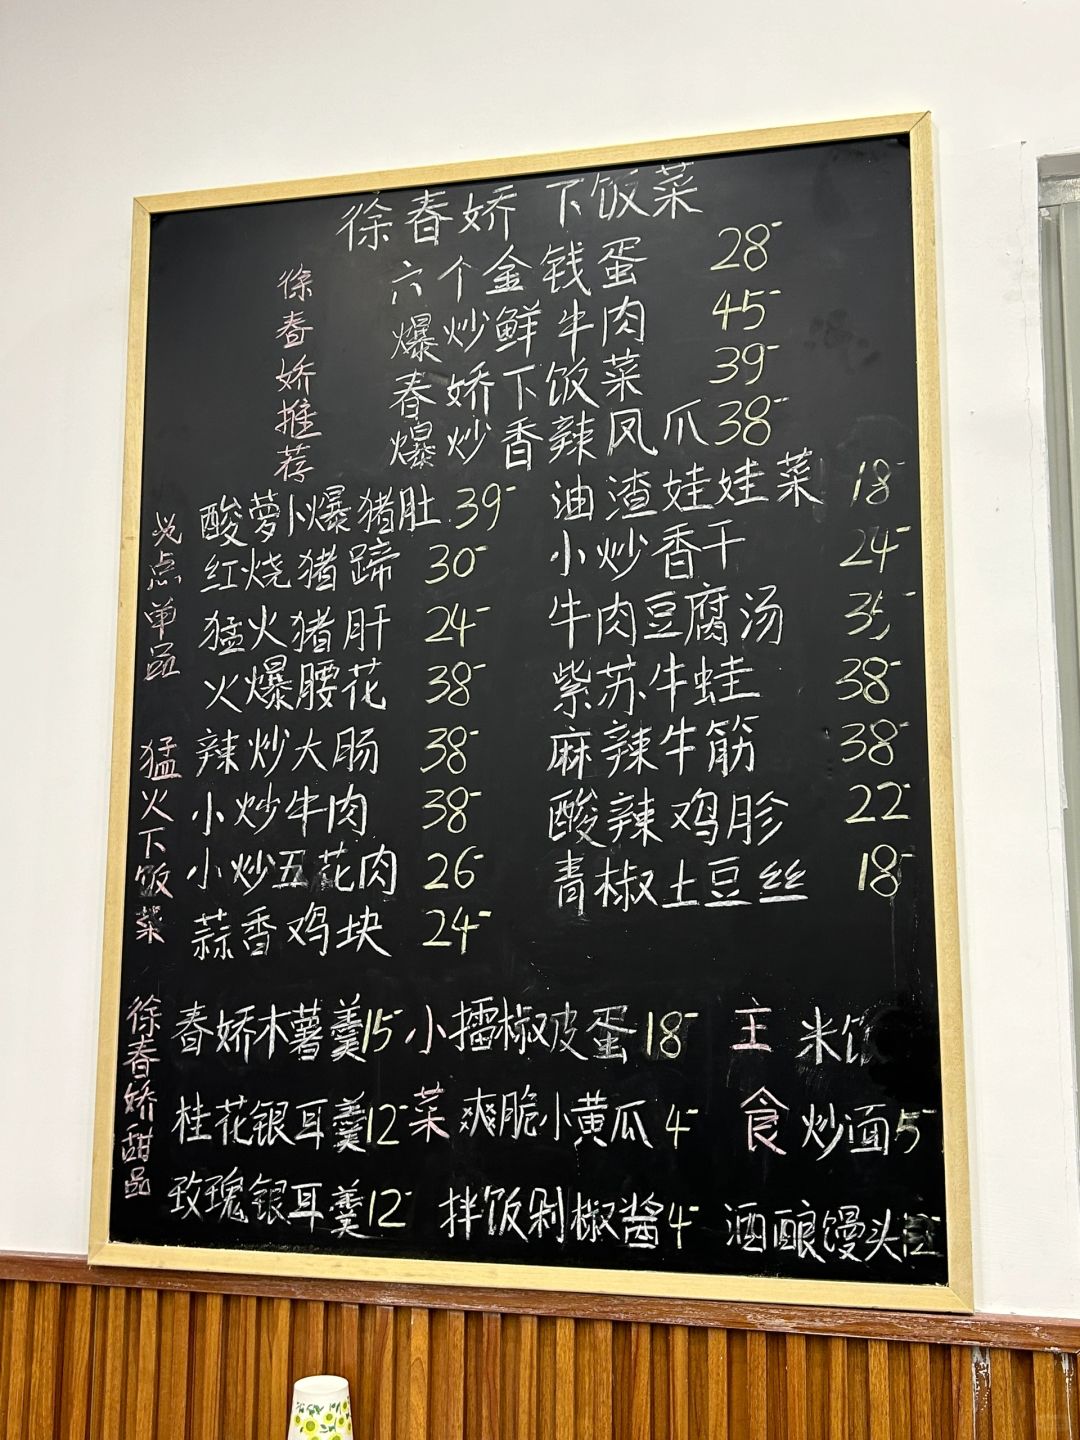 徐春娇 下饭菜
徐春娇推荐
六个金钱蛋 28-
爆炒鲜牛肉 45-
春娇下饭菜 39-
爆炒香辣凤爪 38-
必点单品
酸萝卜爆猪肚 39-
红烧猪蹄 30-
猛火猪肝 24-
火爆腰花 38-
猛火下饭菜
辣炒大肠 38-
小炒牛肉 38-
小炒五花肉 26-
蒜香鸡块 24-
油渣娃娃菜 18-
小炒香干 24-
牛肉豆腐汤 35-
紫苏牛蛙 38-
麻辣牛筋 38-
酸辣鸡胗 22-
青椒土豆丝 18-
徐春娇甜品
春娇木薯羹 15-
桂花银耳羹 12-
玫瑰银耳羹 12-
小菜
擂椒皮蛋 18-
爽脆小黄瓜 4-
拌饭剁椒酱 4-
主食
米饭
炒面 5-
酒酿馒头